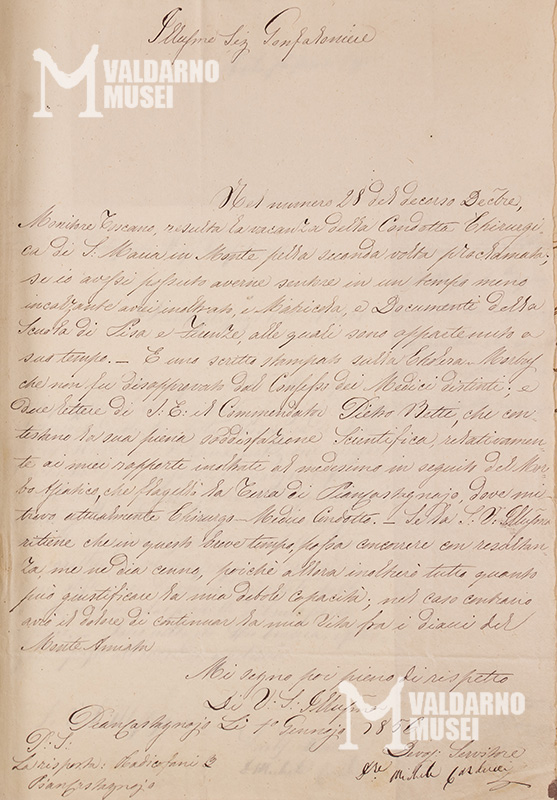 Illusmo Sig Gonfaloniere
VALDARNO
MUSEI
Nel numero 28 del decorso Decbre,
Monitore Toscano, risulta la vacanza della Condotta Chirurgi,
ca di S: Maria in Monte pella seconda volta proclamata;
se io avessi possuto averne sentore in un tempo meno
incalzante avrei inoltrato, e Matricola, e Documenti della
Scuola di Pisa e Firenze, alle quali sono appartenuto a
suo tempo. _ E uno scritto stampato sulla Cholera-Morbus
che non fu disapprovato dal Consesso dei Medici distinti; e
due lettere di S: E: il Commendator Pietro Betti, che con
testano la sua piena soddisfazione Scientifica, relativamen
te ai miei rapporti inoltrati al medesimo in seguito del Mor
bo Asiatico, che flagellò la Terra di Piancastagnajo, dove mi
trovo attualmente Chirurgo-Medico Condotto. _ Se la S: V: Illusma
ritiene che in questo breve tempo, possa concorrere con resultan
za, me ne dia cenno, poichè allora inoltrerò tutto quanto
può giustificare la mia debole capacità; nel caso contrario
avrò il dolore di continuar la mia vita fra i diacci del
Monte Amiata
Mi segno poi pieno di rispetto
Di V: S: Illusma
Piancastagnajo Li 1° Gennajo 1856
VALDARNO
MUSEI
P: S:
Devos: Servitore
La risposta: Radicofani
Dre Michele Carducci
Piancastagnajo